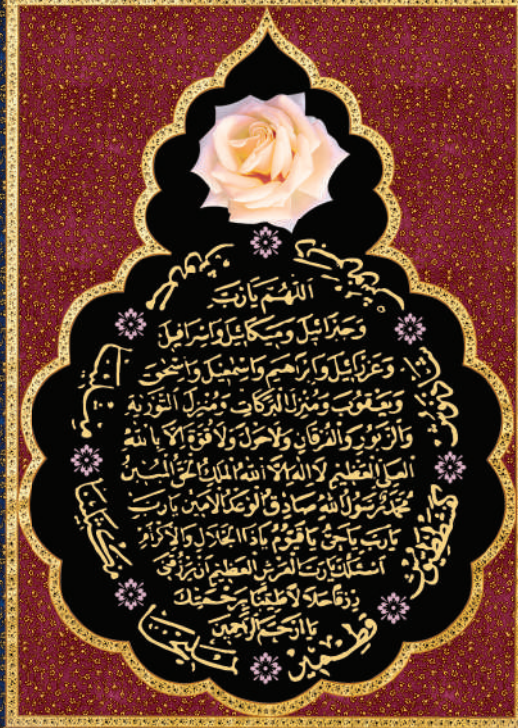 اللهم يارب
وجبرائيل وميكائيل واسرافيل
وعزرائيل وابراهيم واسمعيل واسحق
ويعقوب ومنزل البركات ومنزل التورية
والزبور والفرقان ولاحول ولاقوة الا بالله
العلى العظيم لا اله الا الله الملك الحق المبين
محمد رسول الله صادق الوعد الامين يارب
يارب ياحى ياقيوم ياذا الجلال والاكرام
اسئلك يارب العرش العظيم ان ترزقنى
رزقا حلالا طيبا برحمتك
ياارحم الراحمين
يمليخا
مكثلينا
مثلينا
مرنوش
دبرنوش
شاذنوش
كفشططيوش
قطمير